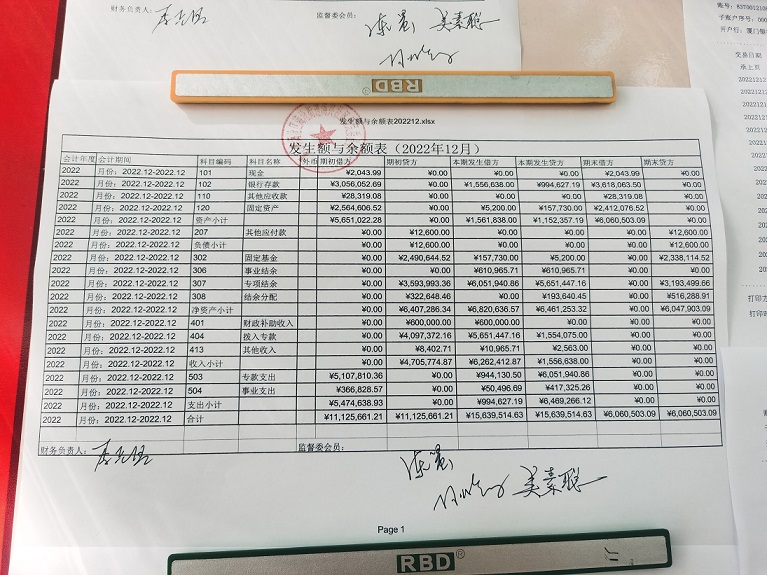 财务负责人：
监督委会员：
账号：
子账户序号：
开户行：厦门银
交易日期
承上页
RBD
发生额与余额表202212.xlsx
发生额与余额表（2022年12月）
会计年度 会计期间 科目编码 科目名称 外币 期初借方 期初贷方 本期发生借方 本期发生贷方 期末借方 期末贷方
2022 月份：2022.12-2022.12 101 现金 ¥2,043.99 ¥0.00 ¥0.00 ¥0.00 ¥2,043.99 ¥0.00
2022 月份：2022.12-2022.12 102 银行存款 ¥3,056,052.69 ¥0.00 ¥1,556,638.00 ¥994,627.19 ¥3,618,063.50 ¥0.00
2022 月份：2022.12-2022.12 110 其他应收款 ¥28,319.08 ¥0.00 ¥0.00 ¥0.00 ¥28,319.08 ¥0.00
2022 月份：2022.12-2022.12 120 固定资产 ¥2,564,606.52 ¥0.00 ¥5,200.00 ¥157,730.00 ¥2,412,076.52 ¥0.00
2022 月份：2022.12-2022.12 资产小计 ¥5,651,022.28 ¥0.00 ¥1,561,838.00 ¥1,152,357.19 ¥6,060,503.09 ¥0.00
2022 月份：2022.12-2022.12 207 其他应付款 ¥0.00 ¥12,600.00 ¥0.00 ¥0.00 ¥0.00 ¥12,600.00
2022 月份：2022.12-2022.12 负债小计 ¥0.00 ¥12,600.00 ¥0.00 ¥0.00 ¥0.00 ¥12,600.00
2022 月份：2022.12-2022.12 302 固定基金 ¥0.00 ¥2,490,644.52 ¥157,730.00 ¥5,200.00 ¥0.00 ¥2,338,114.52
2022 月份：2022.12-2022.12 306 事业结余 ¥0.00 ¥0.00 ¥610,965.71 ¥610,965.71 ¥0.00 ¥0.00
2022 月份：2022.12-2022.12 307 专项结余 ¥0.00 ¥3,593,993.36 ¥6,051,940.86 ¥5,651,447.16 ¥0.00 ¥3,193,499.66
2022 月份：2022.12-2022.12 308 结余分配 ¥0.00 ¥322,648.46 ¥0.00 ¥193,640.45 ¥0.00 ¥516,288.91
2022 月份：2022.12-2022.12 净资产小计 ¥0.00 ¥6,407,286.34 ¥6,820,636.57 ¥6,461,253.32 ¥0.00 ¥6,047,903.09
2022 月份：2022.12-2022.12 401 财政补助收入 ¥0.00 ¥600,000.00 ¥600,000.00 ¥0.00 ¥0.00 ¥0.00
2022 月份：2022.12-2022.12 404 拨入专款 ¥0.00 ¥4,097,372.16 ¥5,651,447.16 ¥1,554,075.00 ¥0.00 ¥0.00
2022 月份：2022.12-2022.12 413 其他收入 ¥0.00 ¥8,402.71 ¥10,965.71 ¥2,563.00 ¥0.00 ¥0.00
2022 月份：2022.12-2022.12 收入小计 ¥0.00 ¥4,705,774.87 ¥6,262,412.87 ¥1,556,638.00 ¥0.00 ¥0.00
2022 月份：2022.12-2022.12 503 专款支出 ¥5,107,810.36 ¥0.00 ¥944,130.50 ¥6,051,940.86 ¥0.00 ¥0.00
2022 月份：2022.12-2022.12 504 事业支出 ¥366,828.57 ¥0.00 ¥50,496.69 ¥417,325.26 ¥0.00 ¥0.00
2022 月份：2022.12-2022.12 支出小计 ¥5,474,638.93 ¥0.00 ¥994,627.19 ¥6,469,266.12 ¥0.00 ¥0.00
2022 月份：2022.12-2022.12 合计 ¥11,125,661.21 ¥11,125,661.21 ¥15,639,514.63 ¥15,639,514.63 ¥6,060,503.09 ¥6,060,503.09
财务负责人： 监督委会员：
Page 1
RBD®